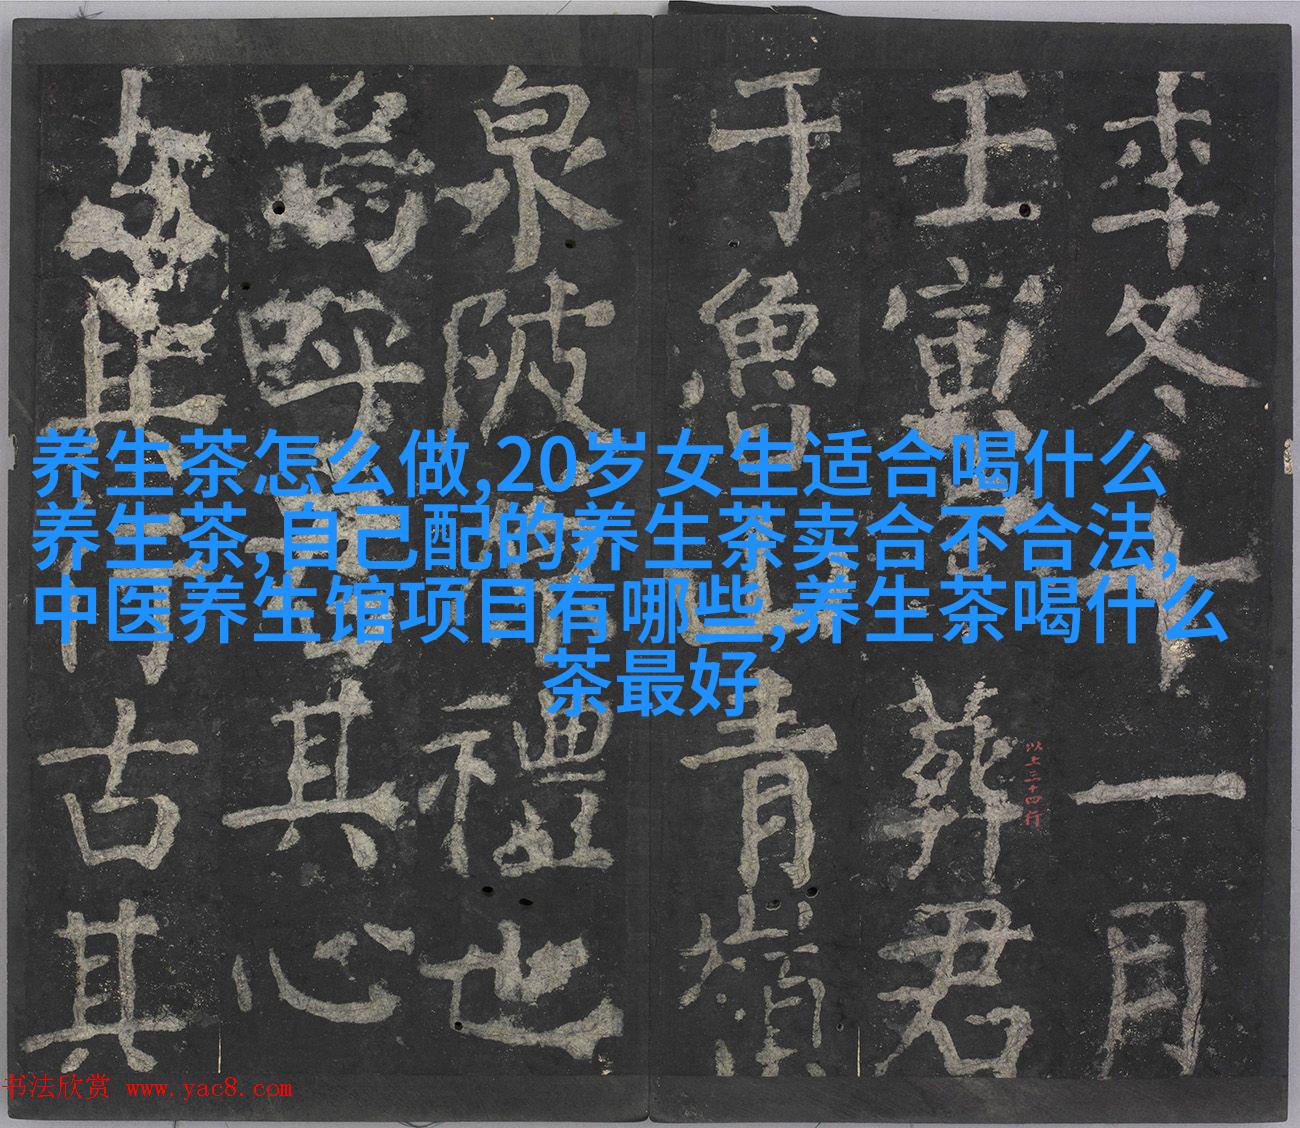 养生茶怎么做,20岁女生适合喝什么
养生茶,自己配的养生茶卖合不合法,
中医养生馆项目有哪些,养生茶喝什么
茶最好
年冬十一月
壬寅葬君
以上三十四行
于魯山青嶺
泉陂禮也
嗚呼其心
其行古其
书法欣赏 www.yac8.com